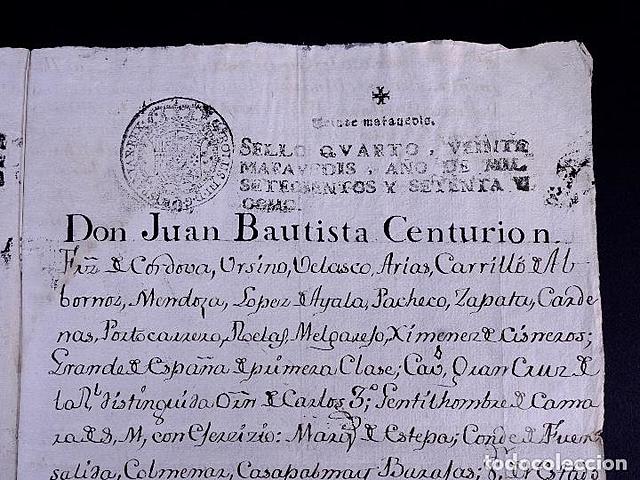 Veinte maravedis.
SELLO QVARTO, VEINTE
MARAVEDIS, AÑO DE MIL
SETECIENTOS Y SETENTA Y
OCHO.
Don Juan Bautista Centurion
Frz̃ de Cordova, Ursino, Velasco, Arias, Carrillo de Al
bornoz, Mendoza, Lopez de Ayala, Pacheco, Zapata, Carde
nas, Portocarrero, Roelas Melgarejo, Ximenez de Cisneros;
Grande de España de primera Clase; Cav.º Gran Cruz de
la Rl. distinguida Orn de Carlos 3º; Gentilhombre de Cama
ra de S. M, con Exercizio: Marq.s de Estepa; Conde de Fuen
salida, Colmenar, Casapalma y Barajas;
todocoleccion